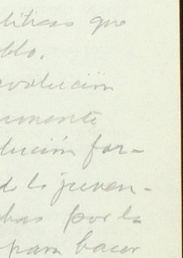 líticas que
blo.
evolución
umente
lución for-
d la juven-
has por la
para hacer